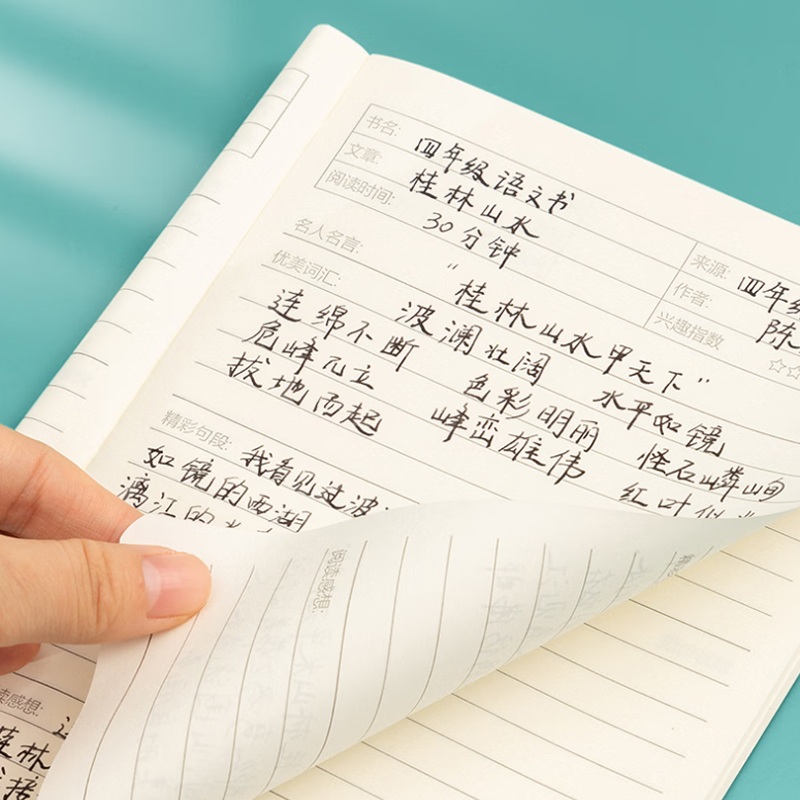 书名: 四年级语文书
文章: 桂林山水 来源: 四年级
阅读时间: 30分钟 作者: 陈
兴趣指数 ☆☆
名人名言: "桂林山水甲天下"
优美词汇:
连绵不断 波澜壮阔 水平如镜
危峰兀立 色彩明丽 怪石嶙峋
拔地而起 峰峦雄伟 红叶似
精彩句段: 我看见过波
如镜的西湖
漓江的水
阅读感想:
读感想:
桂林